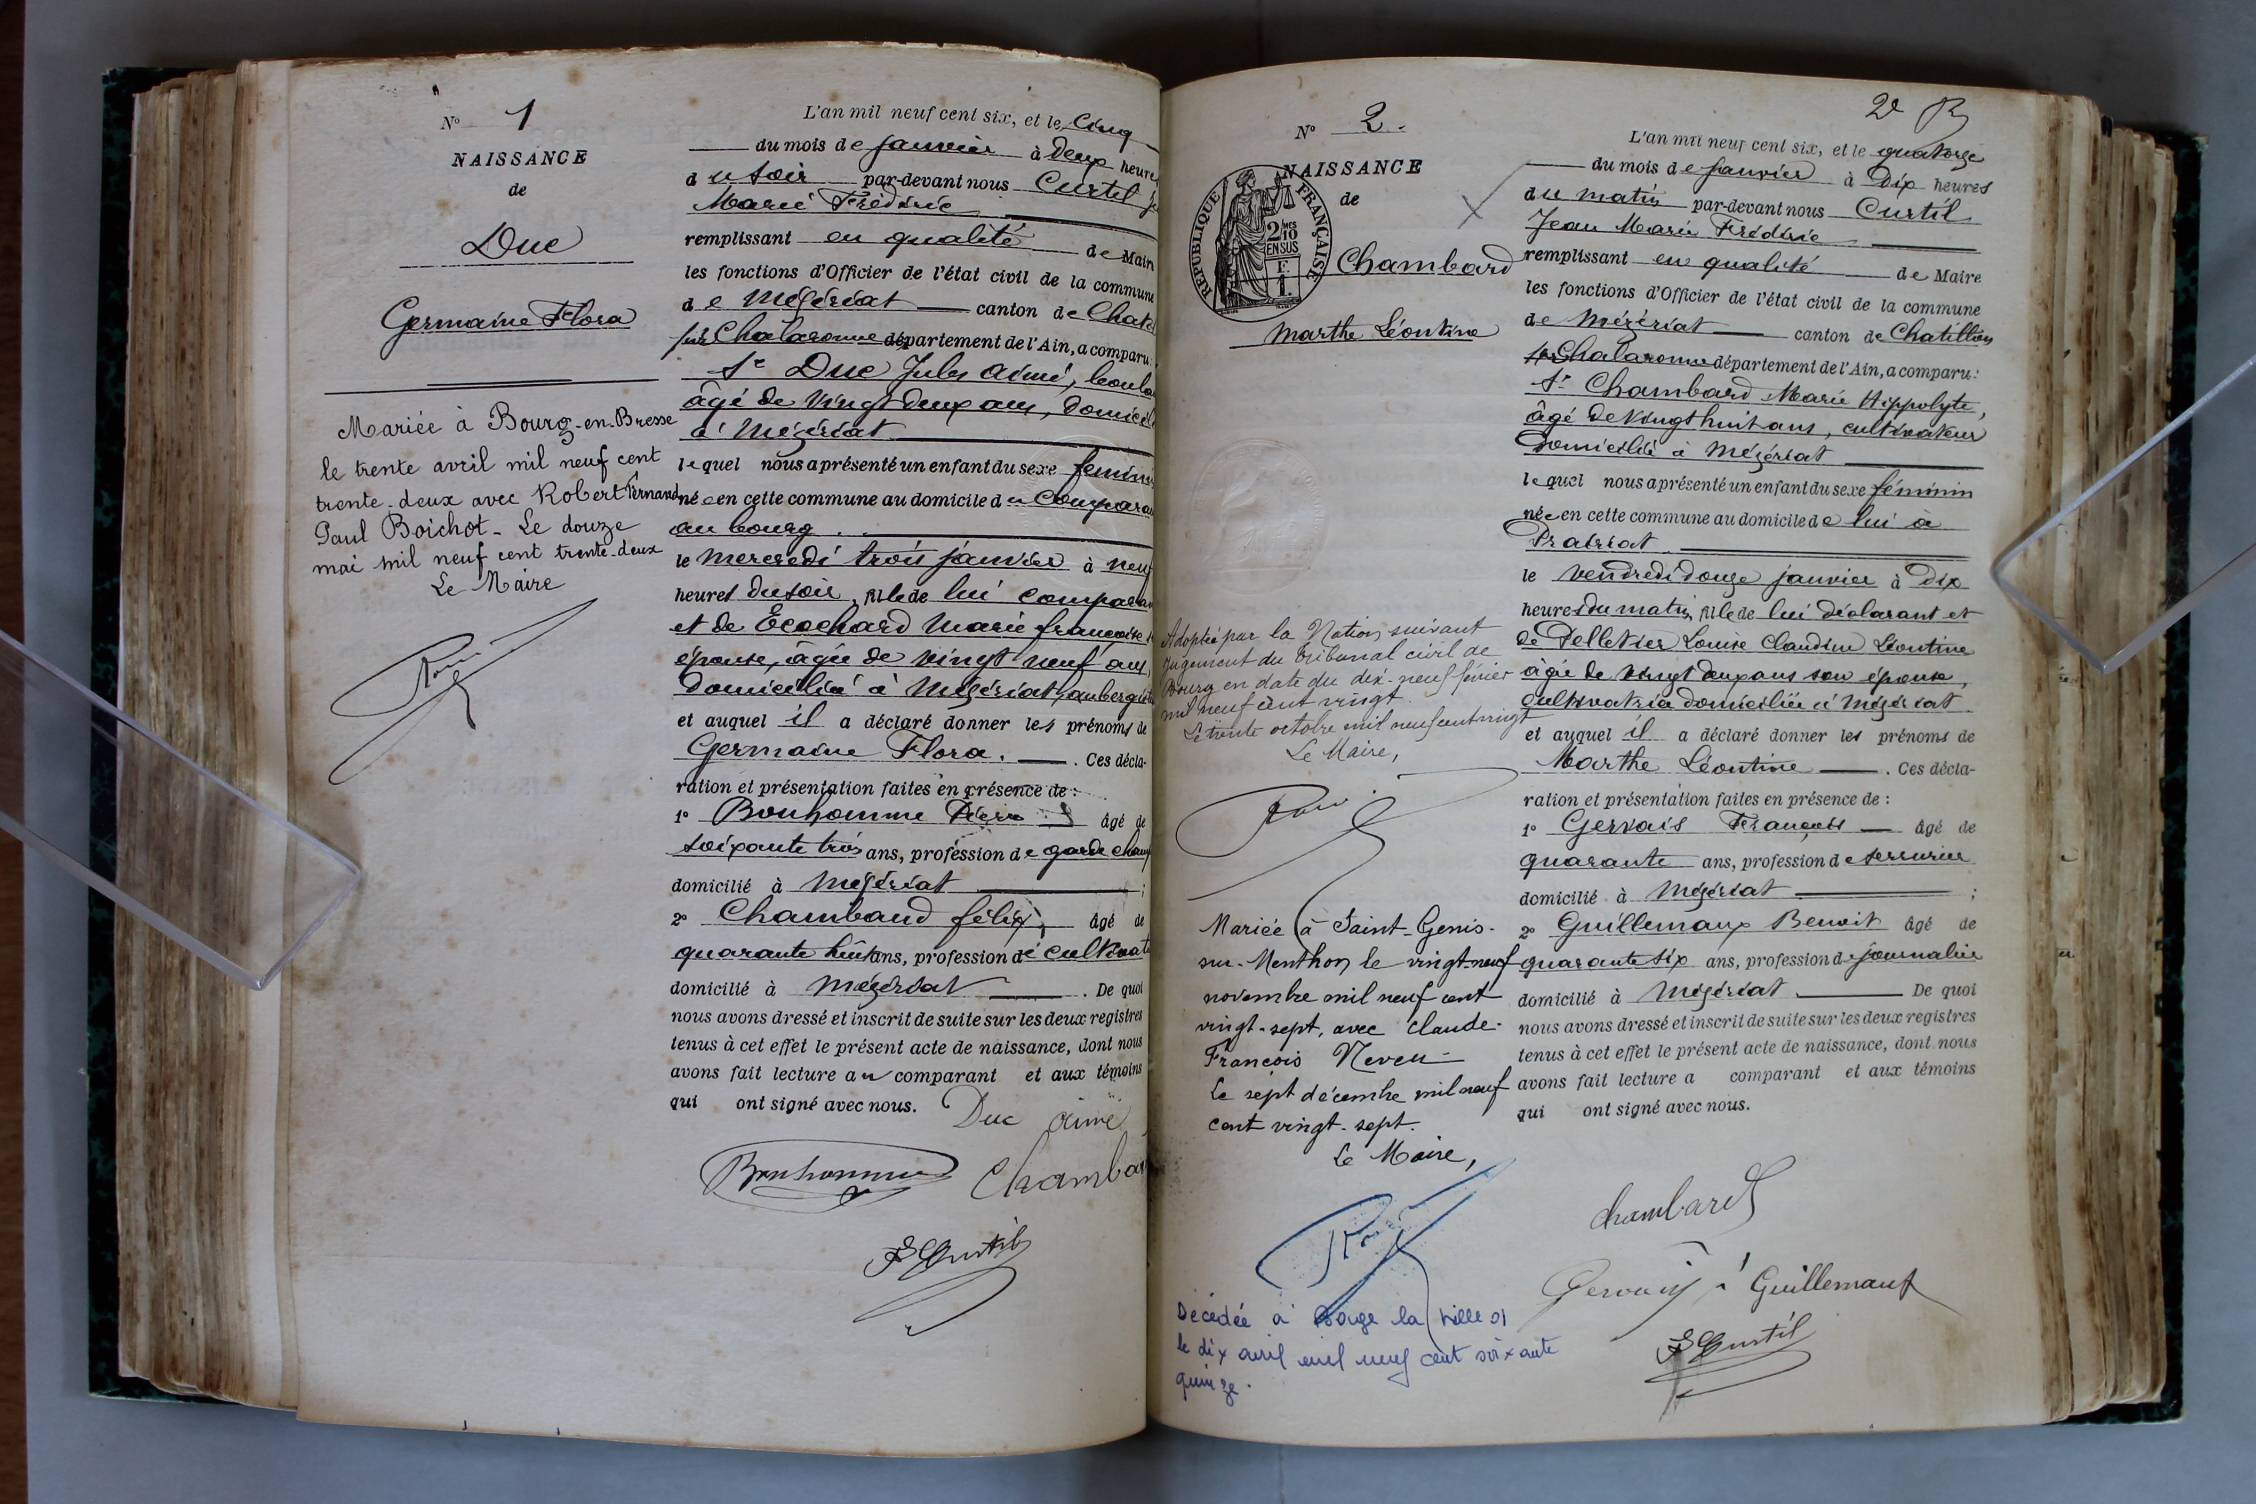 N° 1
NAISSANCE
de
Duc
Germaine Flora
Mariée à Bourg-en-Bresse
le trente avril mil neuf cent
trente-deux avec Robert Fernand
Paul Boichot - Le douze
mai mil neuf cent trente-deux
Le Maire
L'an mil neuf cent six, et le Cinq
du mois de janvier à Deux heure
du soir par-devant nous Curtil
Marie Frédéric
remplissant en qualité de Mair
les fonctions d'Officier de l'état civil de la commune
de Mézériat canton de Chat
sur Chalaronne département de l'Ain, a comparu:
Sr Duc Jules Aimé,
âgé de vingt deux ans, domicil
à Mézériat
lequel nous a présenté un enfant du sexe fémini
née en cette commune au domicile du compara
au bourg
le mercredi trois janvier à neuf
heures du soir, fille de lui compara
et de Ecochard Marie françoise
épouse, âgée de vingt neuf ans,
domiciliée à Mézériat, aubergist
et auquel il a déclaré donner les prénoms de
Germaine Flora. Ces décla-
ration et présentation faites en présence de :
1° Bonhomme Pierre âgé de
soixante trois ans, profession de garde cham
domicilié à Mézériat ;
2° Chambaud félix, âgé de
quarante huit ans, profession de cultivat
domicilié à Mézériat . De quoi
nous avons dressé et inscrit de suite sur les deux registres
tenus à cet effet le présent acte de naissance, dont nous
avons fait lecture au comparant et aux témoins
qui ont signé avec nous.
Duc aimé
Bonhomme Chambau
Curtil
2e
N° 2.
NAISSANCE
de
RÉPUBLIQUE FRANÇAISE
2 MES 10 EN SUS
F. 1.
Chambard
Marthe Léontine
Adoptée par la Nation suivant
jugement du tribunal civil de
Bourg en date du dix-neuf février
mil neuf cent vingt
Le trente octobre mil neuf cent vingt
Le Maire,
Mariée à Saint-Genis-
sur-Menthon le vingt-neuf
novembre mil neuf cent
vingt-sept, avec Claude-
François Neveu-
Le sept décembre mil neuf
cent vingt-sept.
Le Maire,
Décédée à Bauge la Ville 01
le dix avril mil neuf cent soixante
quinze.
L'an mil neuf cent six, et le quatorze
du mois de janvier à Dix heures
du matin par-devant nous Curtil
Jean Marie Frédéric
remplissant en qualité de Maire
les fonctions d'Officier de l'état civil de la commune
de Mézériat canton de Chatillon
sr Chalaronne département de l'Ain, a comparu:
Sr Chambard Marie Hippolyte,
âgé de vingt huit ans, cultivateur
domicilié à Mézériat
lequel nous a présenté un enfant du sexe féminin
née en cette commune au domicile de lui à
Prairiat
le vendredi douze janvier à Dix
heures du matin, fille de lui déclarant et
de Pelletier Louise Claudine Léontine
âgée de vingt deux ans son épouse,
cultivatrice domiciliée à Mézériat.
et auquel il a déclaré donner les prénoms de
Marthe Léontine . Ces décla-
ration et présentation faites en présence de :
1° Gervais François âgé de
quarante ans, profession de serrurier
domicilié à Mézériat ;
2° Guillemaux Benoit âgé de
quarante six ans, profession de journalier
domicilié à Mézériat . De quoi
nous avons dressé et inscrit de suite sur les deux registres
tenus à cet effet le présent acte de naissance, dont nous
avons fait lecture a comparant et aux témoins
qui ont signé avec nous.
Chambard
Gervais Guillemaux
Curtil